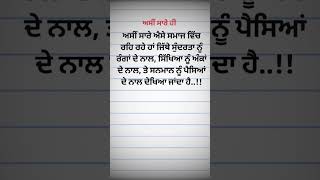 ਅਸੀਂ ਸਾਰੇ ਹੀ
ਅਸੀਂ ਸਾਰੇ ਐਸੇ ਸਮਾਜ ਵਿੱਚ
ਰਹਿ ਰਹੇ ਹਾਂ ਜਿੱਥੇ ਸੁੰਦਰਤਾ ਨੂੰ
ਰੰਗਾਂ ਦੇ ਨਾਲ, ਸਿੱਖਿਆ ਨੂੰ ਅੰਕਾਂ
ਦੇ ਨਾਲ, ਤੇ ਸਨਮਾਨ ਨੂੰ ਪੈਸਿਆਂ
ਦੇ ਨਾਲ ਦੇਖਿਆ ਜਾਂਦਾ ਹੈ..!!